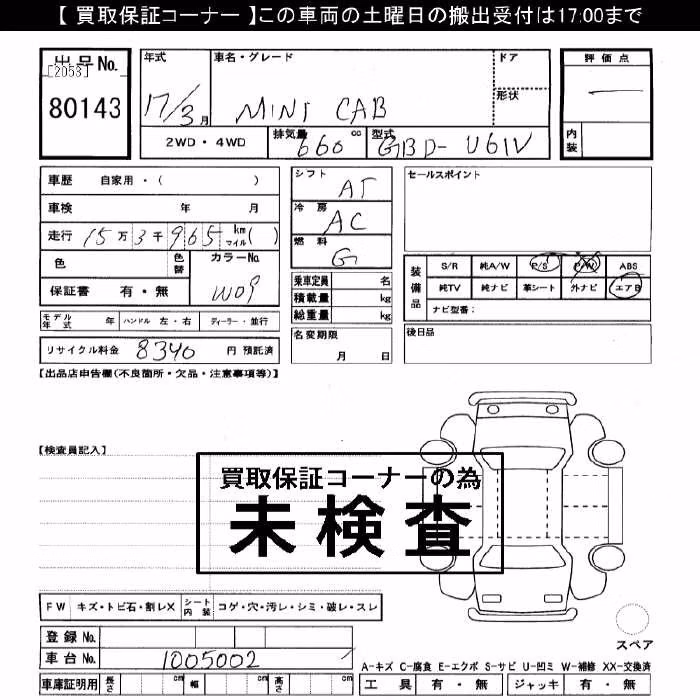 【 買取保証コーナー 】この車両の土曜日の搬出受付は17:00まで
出品No.
[2053]
80143
年式
17/3月
車名・グレード
MINI CAB
ドア
形状
評価点
—
内装
2WD・4WD
排気量 660 cc
型式 GBD-U61V
車歴 自家用・( )
車検 年 月
走行 15万3千965 km マイル( )
色
色替
カラーNo. W09
保証書 有・無
シフト AT
冷房 AC
燃料 G
乗車定員 名
積載量 kg
総重量 kg
セールスポイント
装備品
S/R 純A/W P/S P/W ABS
純TV 純ナビ 革シート 外ナビ エアB
ナビ型番:
モデル年式 年 ハンドル 左・右 ディーラー・並行
名変期限 月 日
後日品
リサイクル料金 8340 円 預託済
【出品店申告欄(不良箇所・欠品・注意事項等)】
【検査員記入】
買取保証コーナーの為
未検査
FW キズ・トビ石・割レX
シート内装 コゲ・穴・汚レ・シミ・破レ・スレ
登録No.
車台No. 1005002
スペア
A-キズ C-腐食 E-エクボ S-サビ U-凹ミ W-補修 XX-交換済
車庫証明用 長さ cm 幅 cm 高さ cm
工具 有・無 ジャッキ 有・無